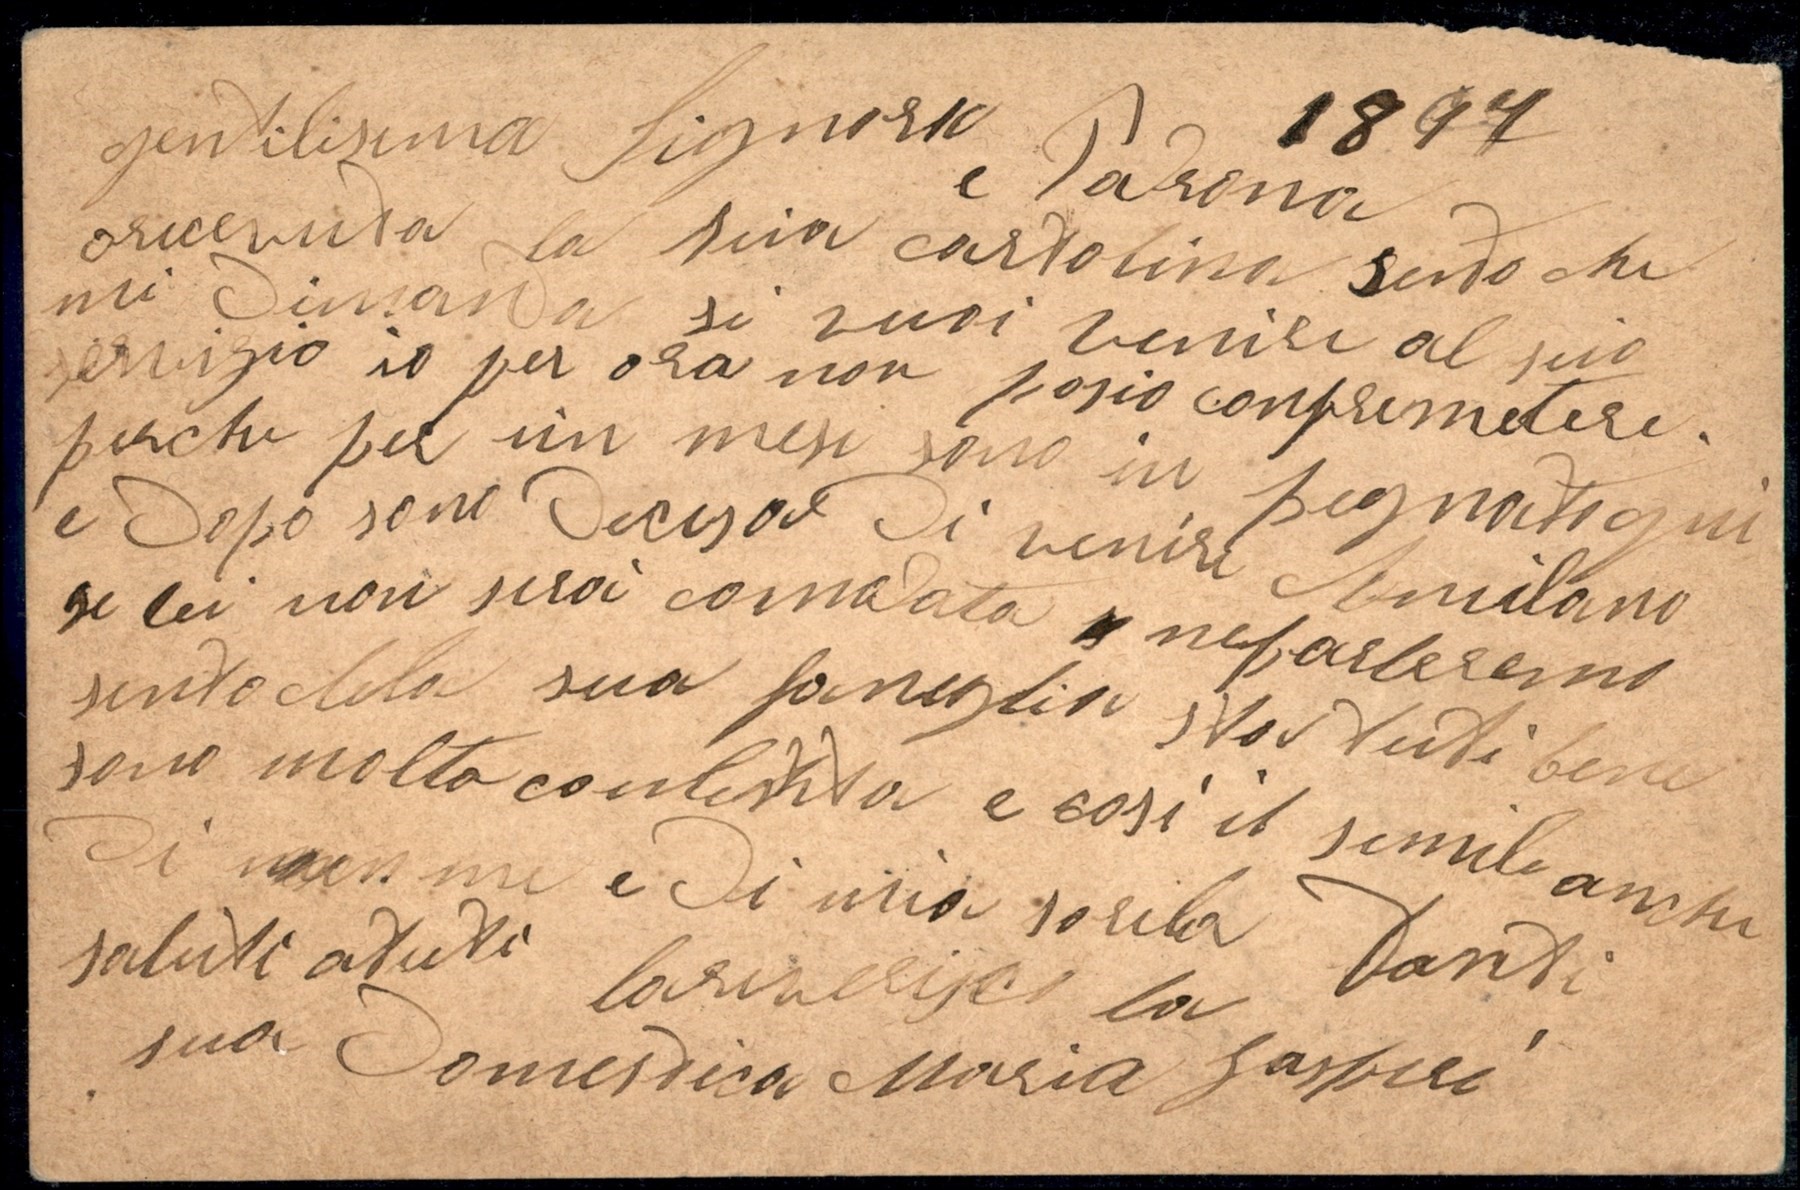 gentilisima Signora 1897
e Padrona
oricevuta la sua cartolina sento che
mi dimanda si vuoi venire al suo
servizio io per ora non posio conpremetere.
perche per un mese sono in pegnata qui
e dopo sono decisa di venire Amilano
se lei non serai comodata neparleremo
sento dela sua fameglia sta tuti bene
sono molto contenta e cosi il semile anche
di me e di mia sorela Tanti
saluti atuti lariverisco la
sua Domestica Maria Gasperi